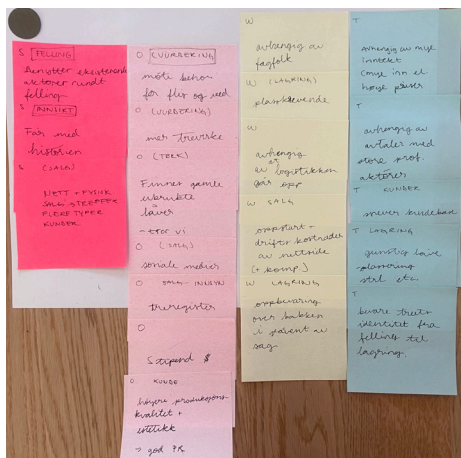 S [FELLING]
Benytter eksisterende
aktører rundt
felling
S [INNSIKT]
Får med
historien
S (SALG)
NETT + FYSISK
SALG TREFFER
FLERE TYPER
KUNDER
O [VURDERING]
møte behov
for flis og ved
O (VURDERING)
mer trevirke
O (TREK)
Finnes gamle
ubrukte
låver
- tror vi
O (SALG)
sosiale medier
O SALG - INNSYN
treregister
O
Stipend $
O KUNDE
høyere produksjons-
kvalitet +
estetikk
→ god PR
W
avhengig av
fagfolk
W (LAGRING)
plasskrevende
W
avhengig
av at logistikken
går opp
W SALG
oppstart +
driftskostnader
av nettside
(+ komp.)
W LAGRING
oppbevaring
over bakken
i påvent av
sag
T
Avhengig av mye
inntekt
(mye inn el
høye priser
T
avhengig av
avtaler med
store prof.
aktører
T KUNDER
snever kundebase
T LAGRING
gunstig låve
- plassering
strl etc.
T
bevare treets
identitet fra
felling til
lagring